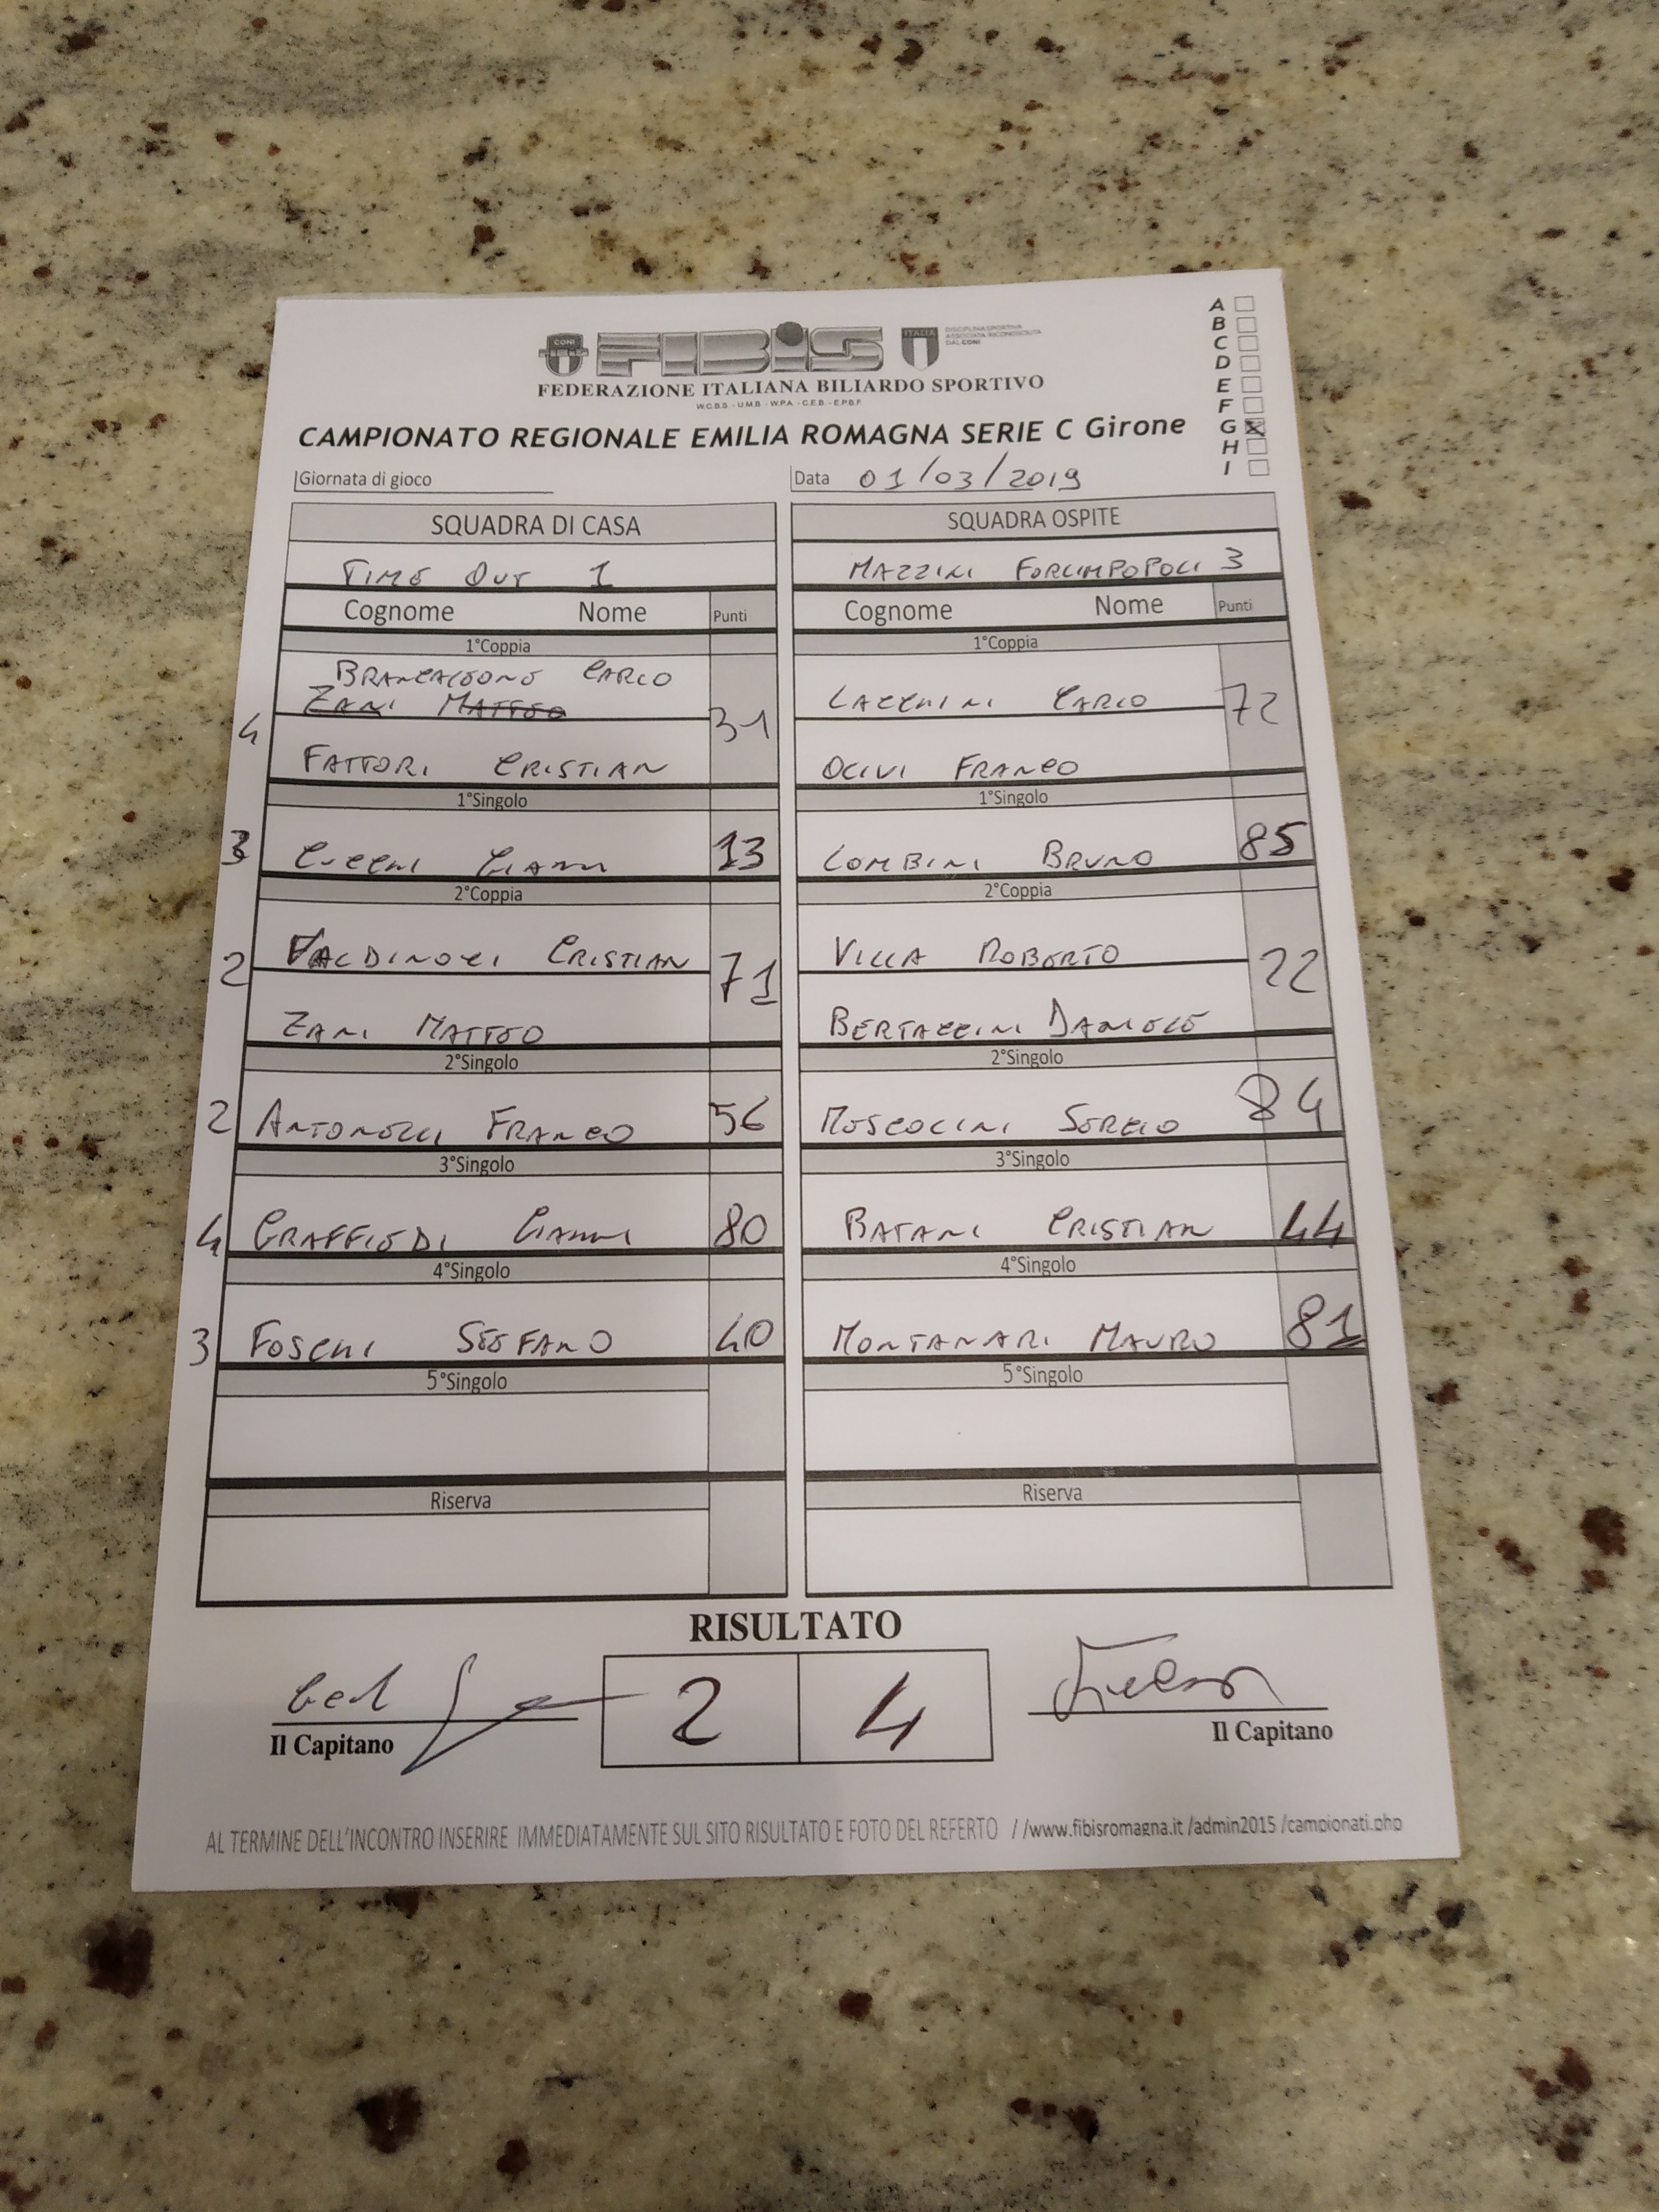 A
B
C
D
E
F
G
H
I
CONI
FIBIS
ITALIA
DISCIPLINA SPORTIVA
ASSOCIATA RICONOSCIUTA
DAL CONI
FEDERAZIONE ITALIANA BILIARDO SPORTIVO
W.C.B.S - U.M.B - W.P.A - C.E.B - E.P.B.F.
CAMPIONATO REGIONALE EMILIA ROMAGNA SERIE C Girone
Giornata di gioco Data 01/03/2019
SQUADRA DI CASA SQUADRA OSPITE
TIME OUT 1 MAZZINI FORLIMPOPOLI 3
Cognome Nome Punti Cognome Nome Punti
1°Coppia 1°Coppia
BRANCALEONE CARLO
ZANI MATTEO LAZZHINI CARLO
4 31 72
FATTORI CRISTIAN OLIVI FRANCO
1°Singolo 1°Singolo
3 CUCCHI GIANNI 13 LOMBINI BRUNO 85
2°Coppia 2°Coppia
VALDINOCI CRISTIAN VILLA ROBERTO
2 71 22
ZANI MATTEO BERTACCINI DANIELE
2°Singolo 2°Singolo
2 ANTONELLI FRANCO 56 MUSCOLINI SERGIO 84
3°Singolo 3°Singolo
4 GRAFFIEDI GIANNI 80 BATANI CRISTIAN 44
4°Singolo 4°Singolo
3 FOSCHI STEFANO 40 MONTANARI MAURO 81
5°Singolo 5°Singolo
Riserva Riserva
RISULTATO
2 4
Il Capitano Il Capitano
AL TERMINE DELL'INCONTRO INSERIRE IMMEDIATAMENTE SUL SITO RISULTATO E FOTO DEL REFERTO //www.fibisromagna.it /admin2015 /campionati.php